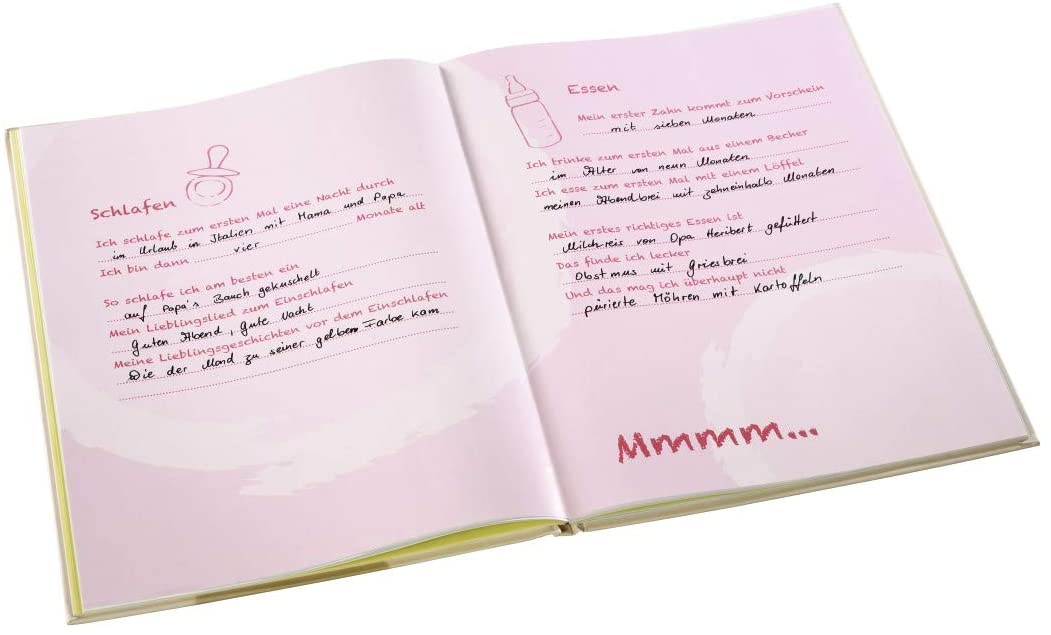 Schlafen
Ich schlafe zum ersten Mal eine Nacht durch
im Urlaub in Italien mit Mama und Papa
Ich bin dann vier Monate alt
So schlafe ich am besten ein
auf Papa's Bauch gekuschelt
Mein Lieblingslied zum Einschlafen
Guten Abend, gute Nacht
Meine Lieblingsgeschichten vor dem Einschlafen
Wie der Mond zu seiner gelben Farbe kam
Essen
Mein erster Zahn kommt zum Vorschein
mit sieben Monaten
Ich trinke zum ersten Mal aus einem Becher
im Alter von neun Monaten
Ich esse zum ersten Mal mit einem Löffel
meinen Abendbrei mit zehneinhalb Monaten
Mein erstes richtiges Essen ist
Milchreis von Opa Heribert gefüttert
Das finde ich lecker
Obstmus mit Griesbrei
Und das mag ich überhaupt nicht
pürierte Möhren mit Kartoffeln
Mmmm...